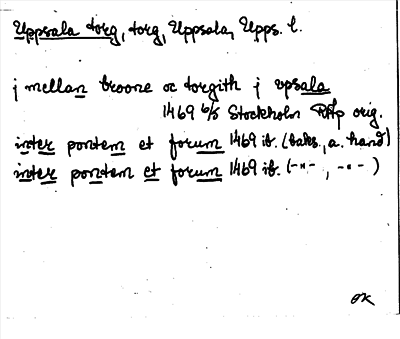 Uppsala torg, torg, Uppsala, Upps. l.
j mellan broone oc torgith j vpsala
1469 6/5 Stockholm RAp orig.
inter pontem et forum 1469 ib. (baks., a. hand)
inter pontem et forum 1469 ib. (-"- , -"- )
OK